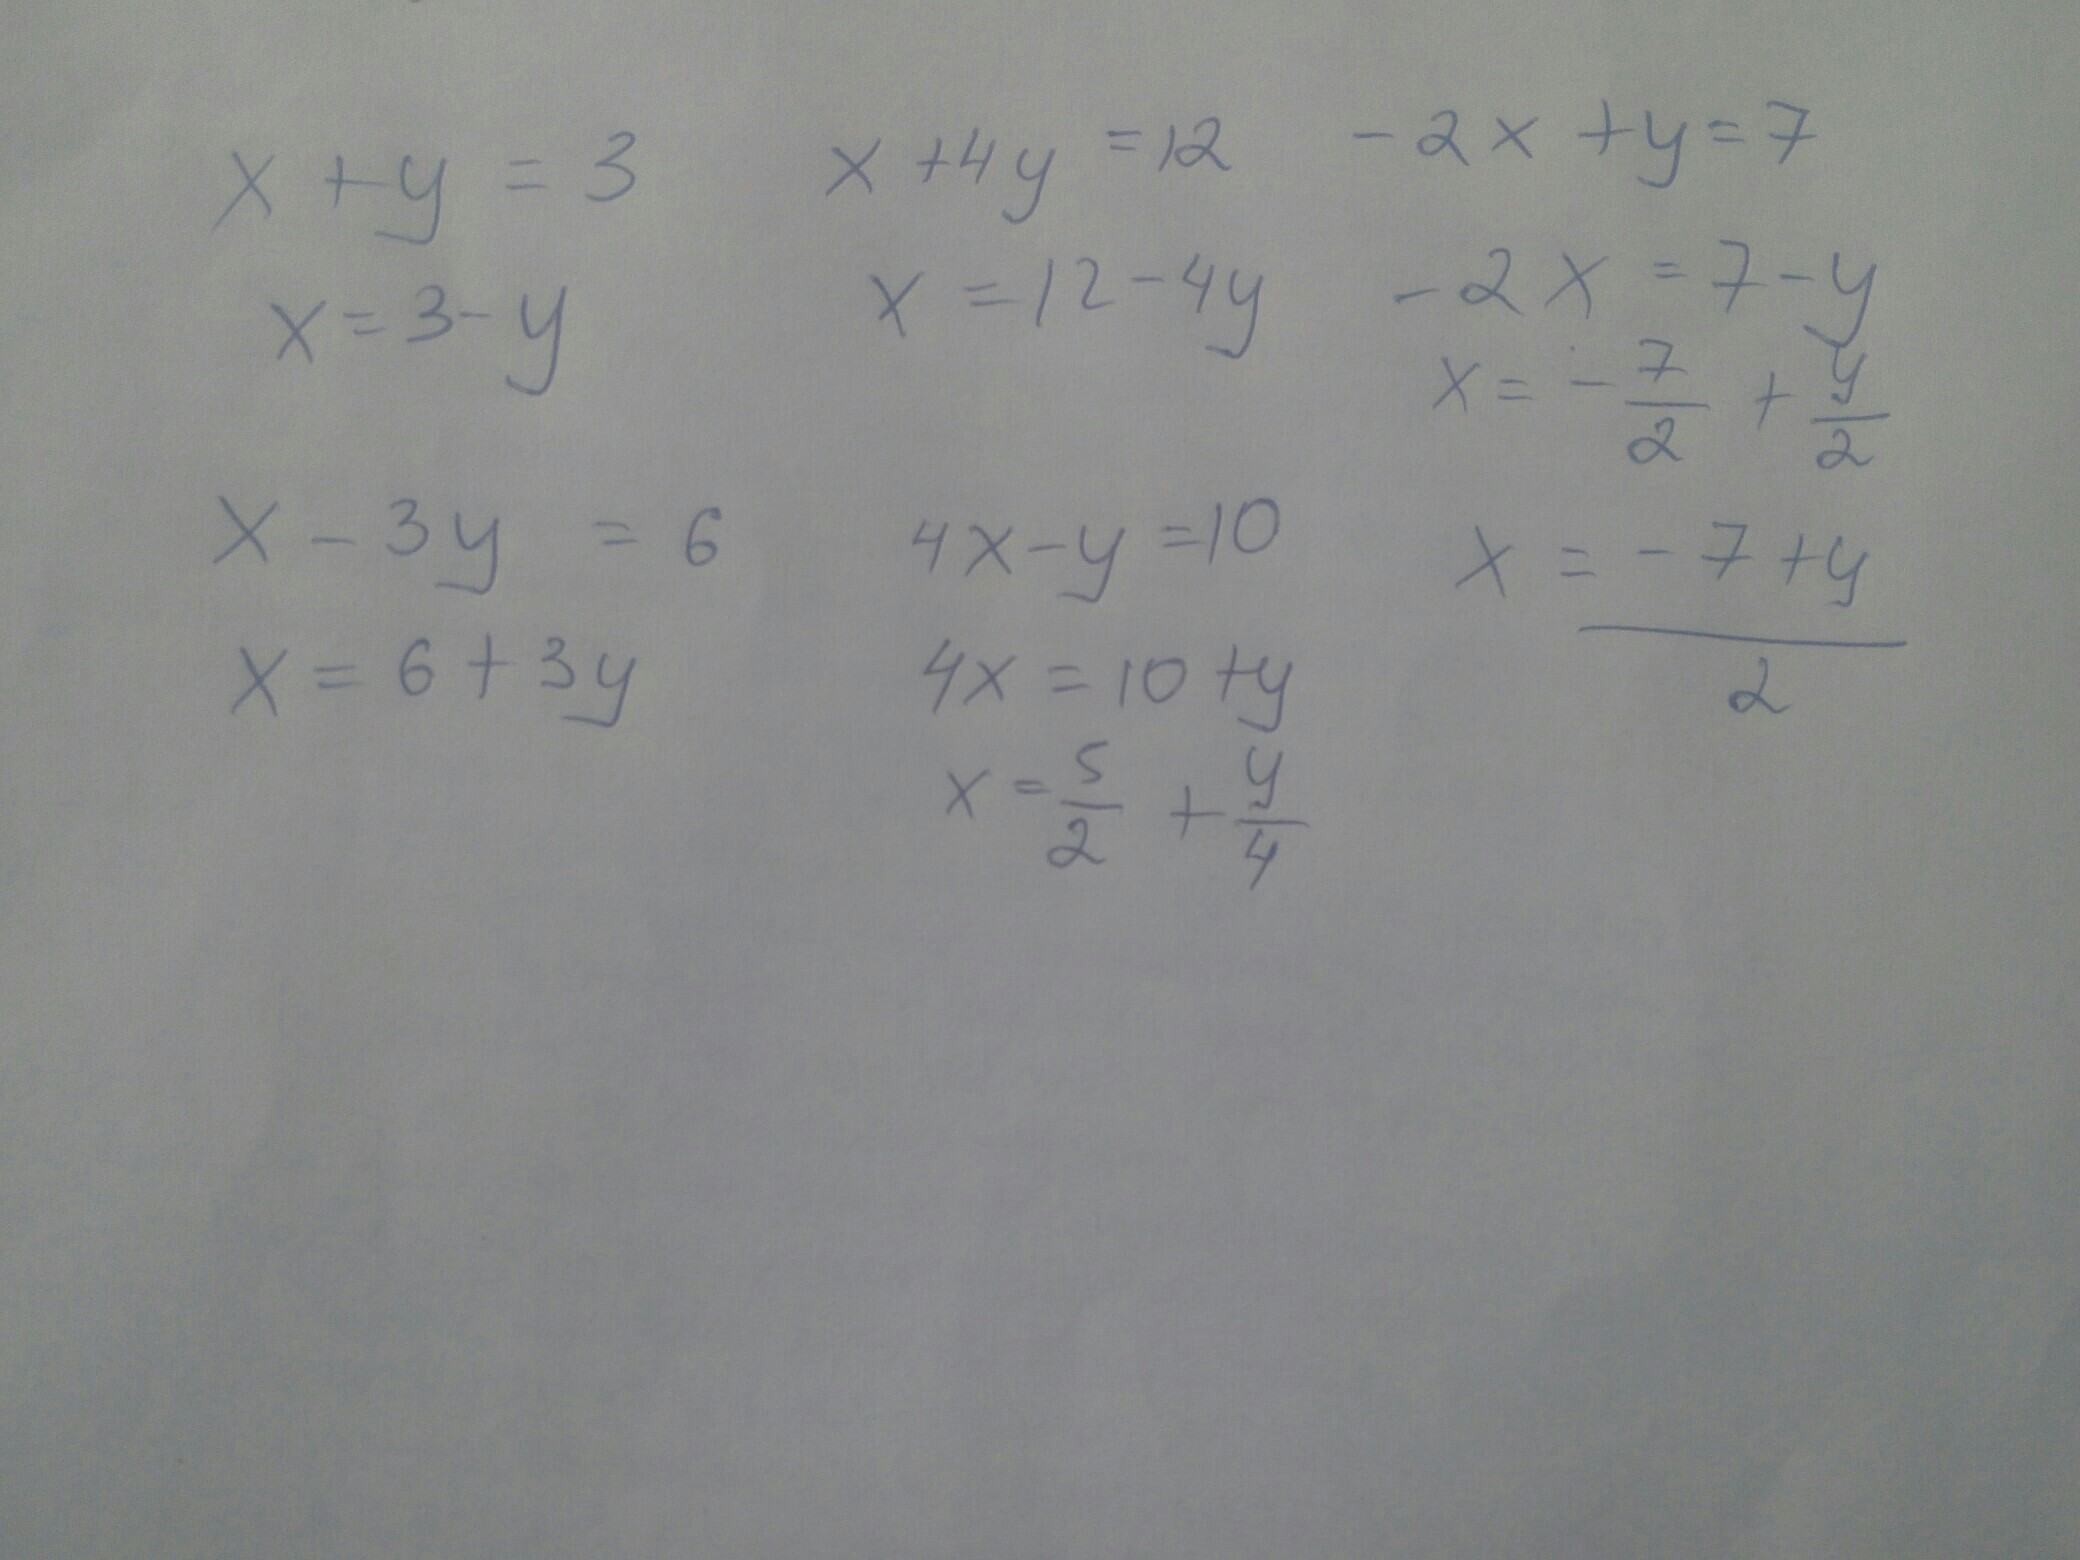 x + y = 3
x = 3 - y
x + 4y = 12
x = 12 - 4y
-2x + y = 7
-2x = 7 - y
x = - 7/2 + y/2
x = (-7 + y)/2
x - 3y = 6
x = 6 + 3y
4x - y = 10
4x = 10 + y
x = 5/2 + y/4